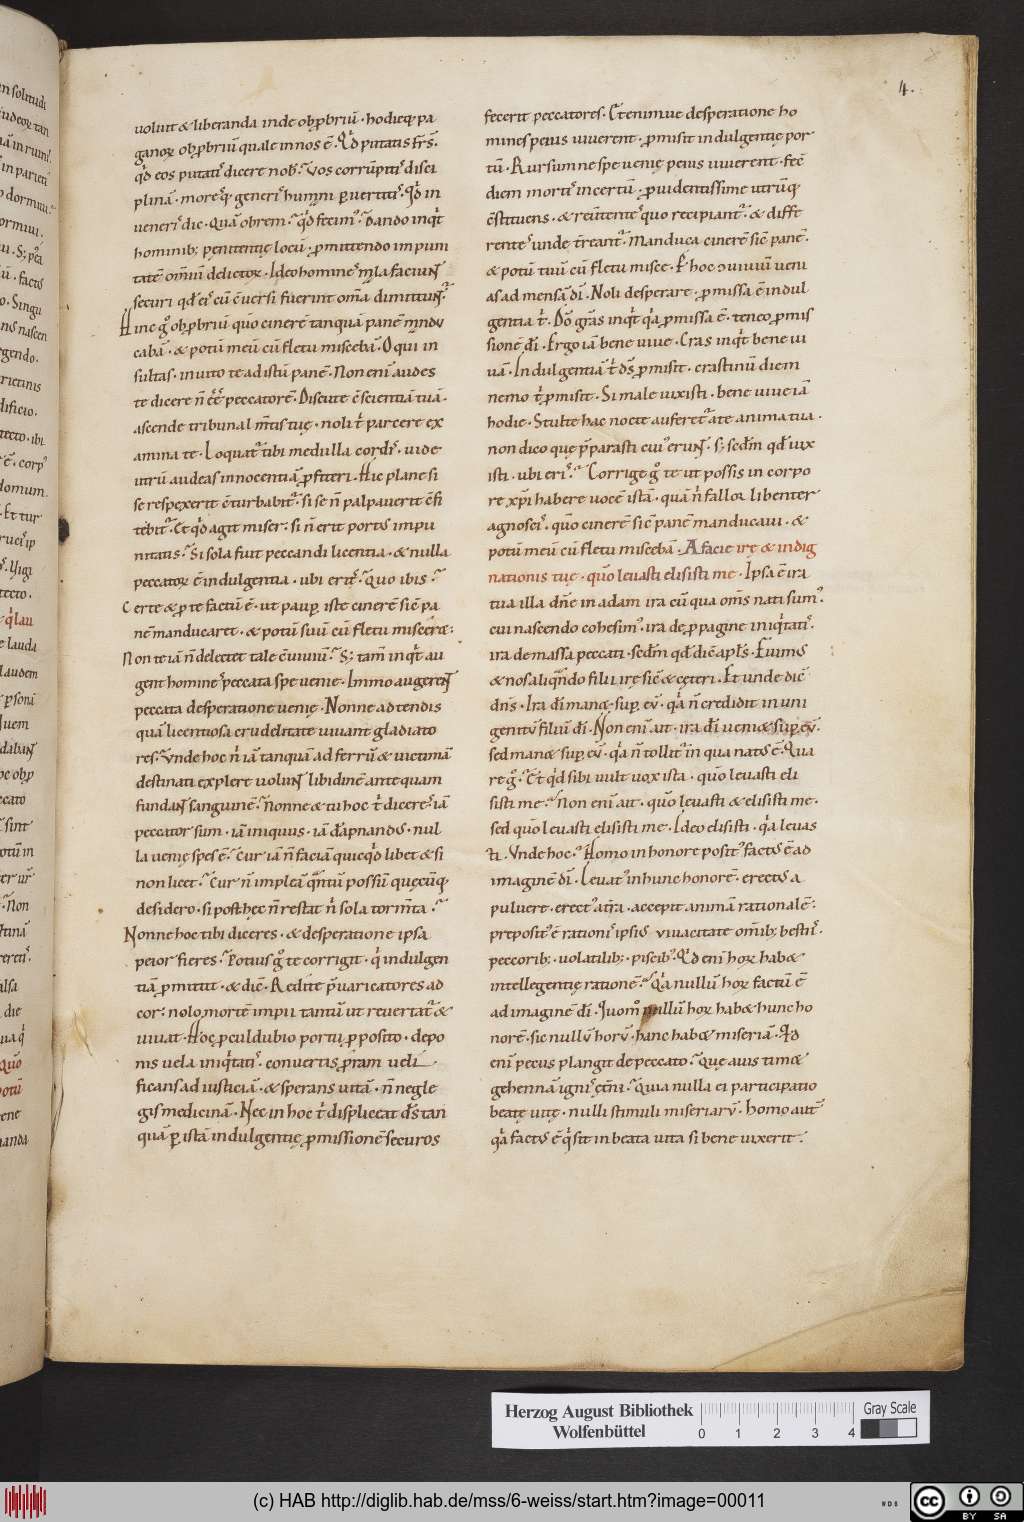 4.
uoluit & liberanda inde obprobriū · hodieq; pa
ganoꝝ obprobriū quale in nos ē · Qd putatis frs̄ ·
qd eos putatis dicere nob · Vos corrūpitis disci
plinā · moresq; generis humani puertitis · Qd in
ueneris dic · Quā ob rem · quid fecim᷒ · Dando inqt
hominib; penitentię locū · promittendo impuni
tatē omniū delictoꝝ · Ideo homines mala faciunt
securi qd eis cū conuersi fuerint omīa dimittunt ·
Hinc g° obprobriū quō cinerē tanquā panē mandu
cabā · & potū meū cū fletu miscebā · O qui in
sultas · inuito te ad istū panē · Non enī audes
te dicere n̄ esse peccatorē · Discute cscientiā tuā ·
ascende tribunal mentis tuę · noli t parcere ex
amina te · Loquatur tibi medulla cordis · uide
utrū audeas innocentiā pfiteri · Hic plane si
se respexerit cturbabit᷒ · si se n̄ palpauerit cfi
tebit᷒ · Et qd agit miser · si n̄ erit portus impu
nitatis · Si sola fuit peccandi licentia · & nulla
peccatoꝝ ē indulgentia · ubi erit · Quo ibis ·
Certe & p te factū ē · ut paup iste cinerē sic pa
nē manducaret · & potū suū cū fletu miscer& ·
Non te iā n̄ delectet tale cuiuiū · S; tam inqt au
gent homines peccata spe uenię · Immo augerent
peccata desperatione uenię · Nonne adtendis
quā licentiosa crudelitate uiuant gladiato
res · Vnde hoc n tanquā ad ferrū & uictimā
destinati explere uolunt libidinē ante quam
fundant sanguinē · Nonne & tu hoc t diceres · iā
peccator sum · iā iniquus · iā dāpnandus · nul
la uenię spes ē · Cur iā n̄ faciā quicqd libet & si
non licet · Cur n̄ impleā quantū possū quęcūq;
desidero · si post hęc n̄ restat n sola tormta ·
Nonne hoc tibi diceres · & desperatione ipsa
peior fieres · Potius g° te corrigit · q indulgen
tiā pmittit · & dic · Redite puaricatores ad
cor · nolo mortē impii tantū ut reuertat᷒ &
uiuat · Hoc peuldubio portu pposito · depo
nis uela iniqtatis · conuertis proram ueli
ficans ad iusticiā · & sperans uitā · n̄ negle
gis medicinā · Nec in hoc t displiceat ds̄ tan
quā p istā indulgentię promissionē securos
fecerit peccatores · Et enim ne desperatione ho
mines peius uiuerent · pmisit indulgentię por
tū · Rursum ne spe uenię peius uiuerent · fec
diem mortis incertū · prouidentissime utrūq;
cstituens · & reuertentes quo recipiant᷒ · & diffe
rentes unde treant᷒ · Manduca cinerē sic panē ·
& potū tuū cū fletu misce · P hoc cuiuiū ueni
as ad mensā dī · Noli desperare · pmissa ē indul
gentia t · Dō grās inqt qa promissa ē · teneo pmis
sionē dī · Ergo iā bene uiue · Cras inqt bene ui
uā · Indulgentiā t ds̄ pmisit · crastinū diem
nemo t pmisit · Si male uixisti · bene uiue iā
hodie · Stulte hac nocte auferetur a te anima tua ·
non dico quę pparasti cui᷒ erunt · s; sedm qd uix
isti · ubi eris · Corrige g° te ut possis in corpo
re xpī habere uocē istā · quā n̄ fallor libenter
agnoscis · quō cinerē sic panē manducaui · &
potū meū cū fletu miscebā · A facie irę & indig
nationis tuę · quō leuasti elisisti me · Ipsa ē ira
tua illa dn̄e in adam ira cū qua oms̄ nati sum᷒ ·
cui nascendo cohesim᷒ · ira de ppagine iniqtatis ·
ira de massa peccati · sedm qd dic apls · Fuim᷒
& nos aliqndo filii irę sic & cęteri · Et unde dic
dns̄ · Ira dī man& sup eū · qa n̄ credidit in uni
genitū filiū dī · Non enī ait · ira dī ueni& sup eū ·
sed man& sup eū · qa n̄ tollitur in qua natus ē · Qua
re g° · Et qd sibi uult uox ista · quō leuasti eli
sisti me · Non enī ait · quō leuasti & elisisti me ·
sed quō leuasti elisisti me · Ideo elisisti · qa leuas
ti · Vnde hoc · Homo in honore posit᷒ factus ē ad
imaginē dī · Leuat᷒ in hunc honorē · erectus a
puluere · erect᷒ a tra · accepit animā rationalē ·
preposit᷒ ē rationis ipsius uiuacitate omīb; bestiis ·
peccorib; · uolatilib; · piscib᷒ · Qd enī hoꝝ hab&
intellegentię rationē · Qa nullū hoꝝ factū ē
ad imaginē dī · Quom° nullū hoꝝ hab& hunc ho
norē · sic nullū horū · hanc hab& miseriā · Qd
enī pecus plangit de peccato · Quę auis tim&
gehennā ignis ęterni · Quia nulla ei participatio
beatę uitę · nulli stimuli miseriarū · homo aut᷒
qa factus ē q sit in beata uita si bene uixerit ·
Herzog August Bibliothek
Wolfenbüttel
0 1 2 3 4
Gray Scale
(c) HAB http://diglib.hab.de/mss/6-weiss/start.htm?image=00011
WDB
cc BY SA